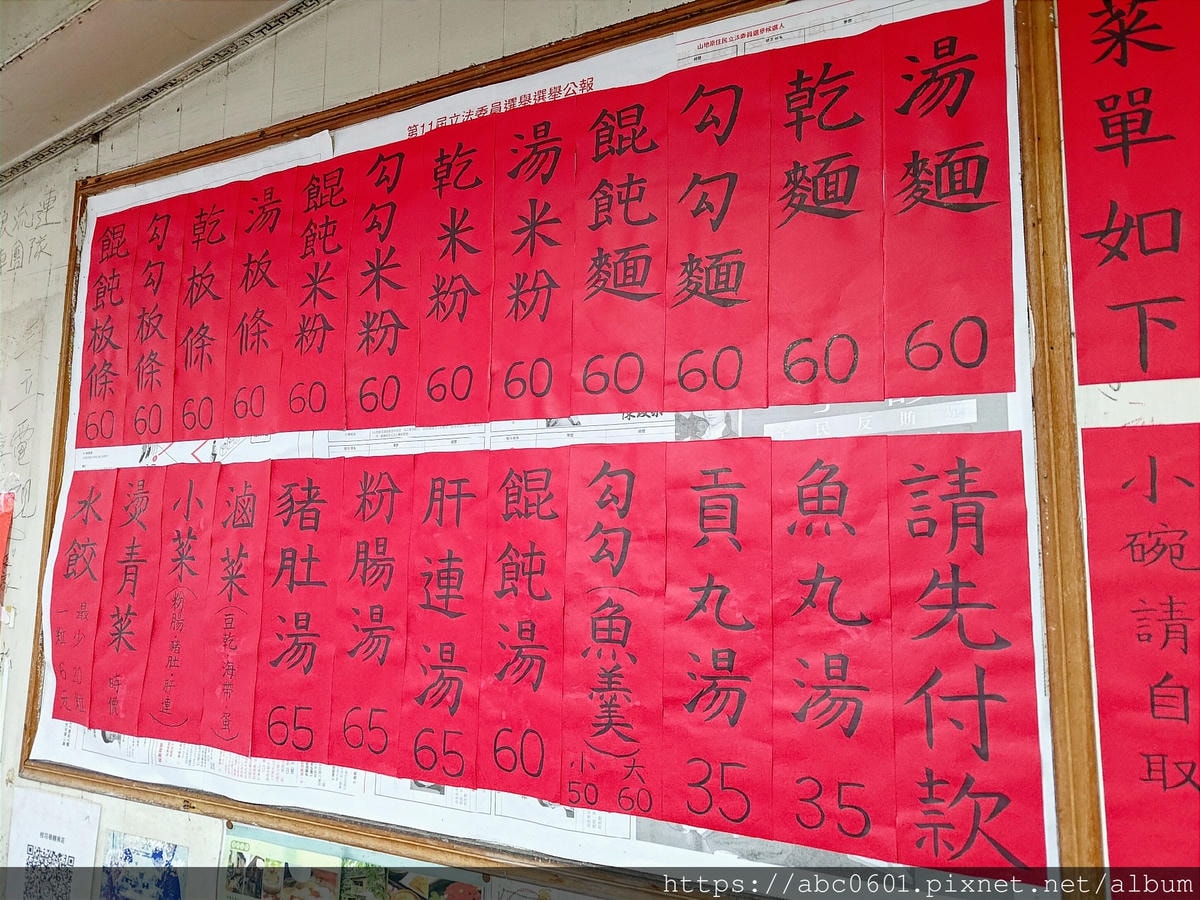 菜單如下
湯麵 60
乾麵 60
勾勾麵 60
餛飩麵 60
湯米粉 60
乾米粉 60
勾勾米粉 60
餛飩米粉 60
湯板條 60
乾板條 60
勾勾板條 60
餛飩板條 60
小碗請自取
請先付款
魚丸湯 35
貢丸湯 35
勾勾(魚羹) 大60 小50
餛飩湯 60
肝連湯 65
粉腸湯 65
豬肚湯 65
滷菜(豆乾.海帶.蛋)
小菜(粉腸.豬肚.肝連)
燙青菜 時價
水餃 最少20粒 一粒6元
第11屆立法委員選舉選舉公報
山地原住民立法委員選舉候選人
https://abc0601.pixnet.net/album